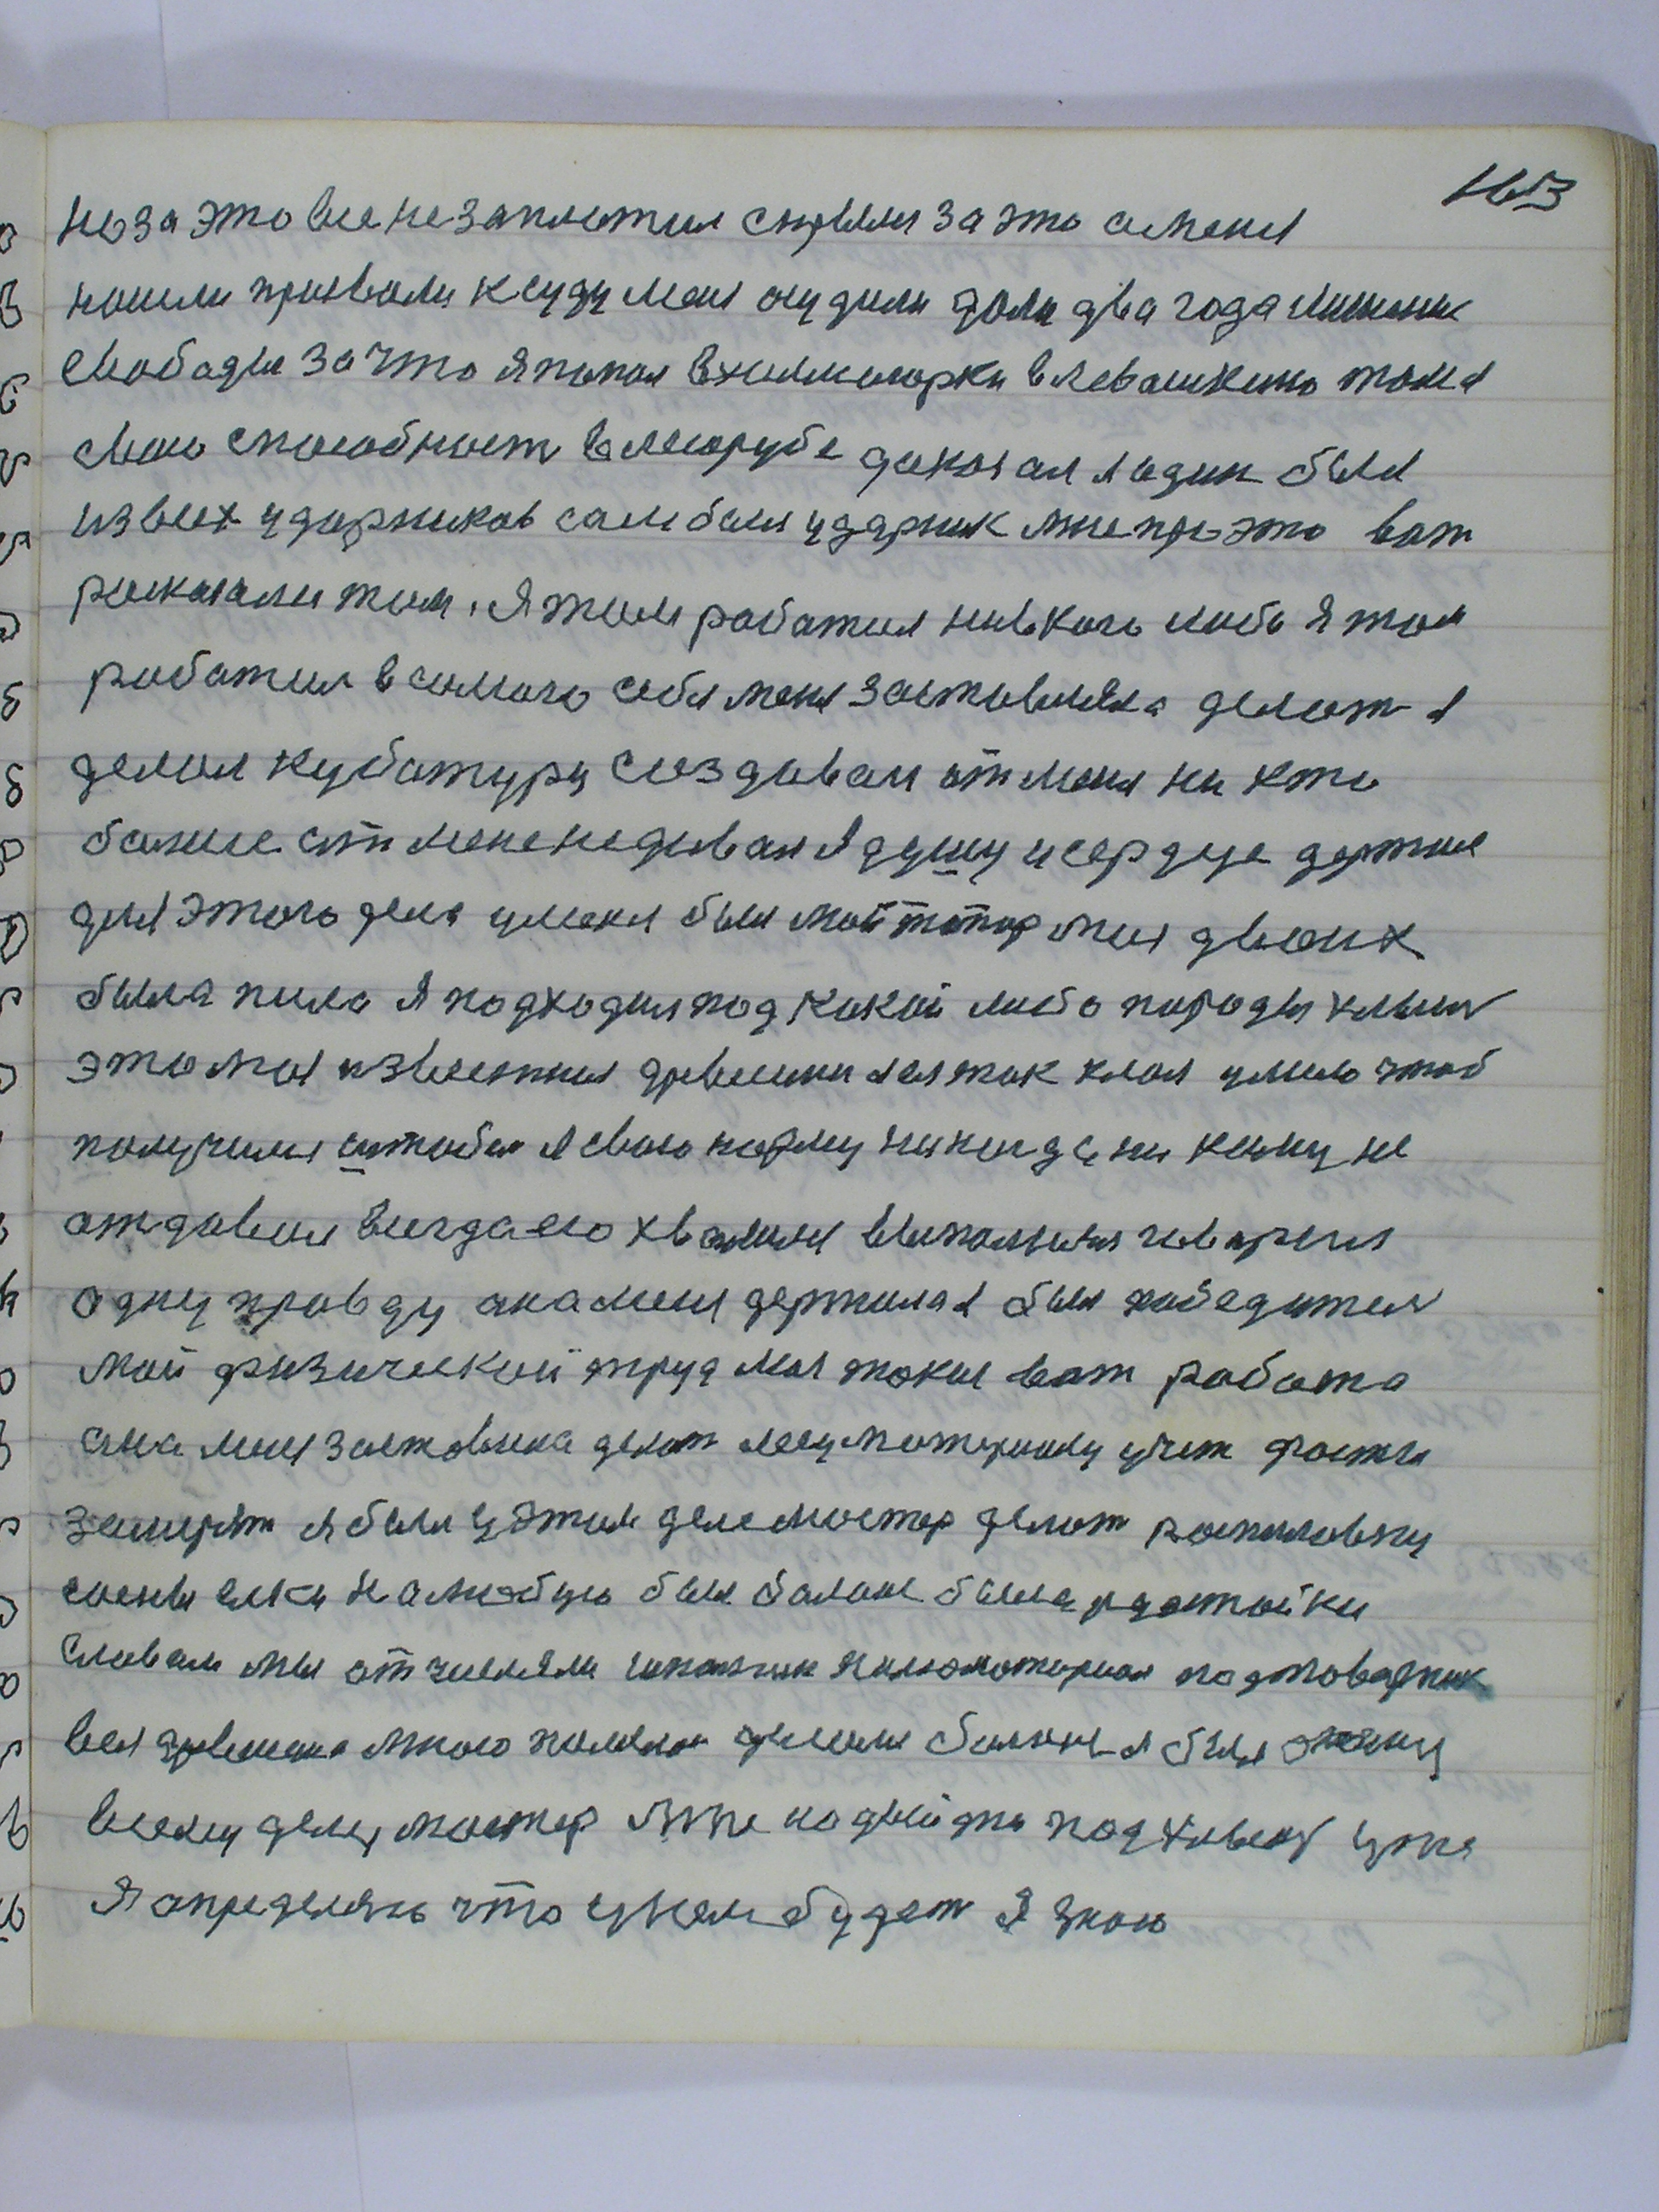 163
но за это все незаплотил скрылся за это а меня
нашли призвали к суду меня осудили дали два года лишения
свобады За что я попал в холмогорки в левашкино там я
свою способност в лесорубе доказал я один был
из всех ударников сам был ударник мне про это вот
росказали там, я там работал нивкого либо я там
работал в самого себя меня заставляла делат я
делал кубатуру создавал от меня ни кто
болше от мене недивал я душу и сердце держал
для этого дела у меня был мой топор моя двоих
была пила я подходил под какой либо породы хлыст
это моя известная древесина я ея так клал умело чтоб
получился штабел я свою норму никогда ни кому не
отдавал всегда ею хвалился выполнял говарил
одну правду ана меня держала я был победител
мой физический труд моя такая вот работа
ана меня заставила делат лесу материалу учет фостга
замерят я был у этим деле мостер делат роспиловку
сосны елки На любую был баланс была рудстойки
Славам мы отчисляли шпальник пиломатериал подтоварник
вся древесина много пилил делали баланс я был этому
всему делу мостер Мне подыйты под хлыст уже
Я определяю что у нем будет Я знаю